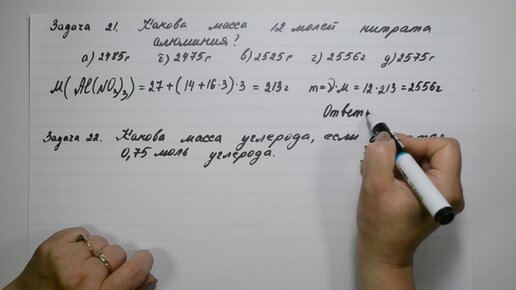 Задача 21. Какова масса 12 молей нитрата
алюминия?
а) 2485г б) 2475г в) 2525г г) 2556г д) 2575г
M(Al(NO3)3) = 27 + (14+16·3)·3 = 213г m=ν·M = 12·213 = 2556г
Ответ
Задача 22. Какова масса углерода, если
0,75 моль углерода.